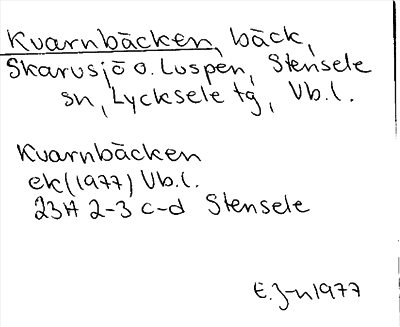 Kvarnbäcken, bäck,
Skarvsjö o. Luspen, Stensele
sn, Lycksele tg, Vb.l.
Kvarnbäcken
ek(1977) Vb.l.
23H 2-3 c-d Stensele
E.J-n 1977